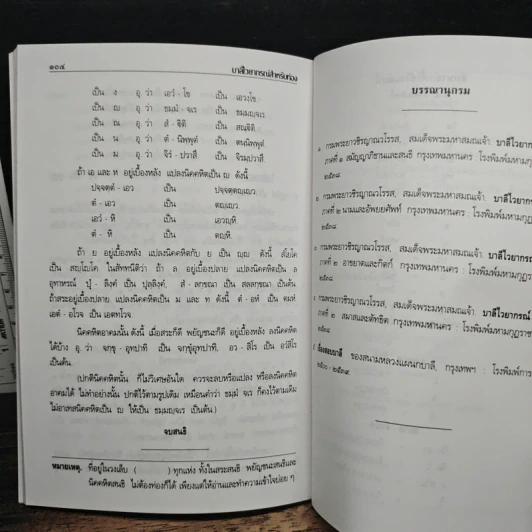 ๑๐๔
บาลีไวยากรณ์สำหรับท่อง
เป็น ง อุ. ว่า เอวํ - โข เป็น เอวงฺโข
เป็น ญ อุ. ว่า ธมฺมํ - จเร เป็น ธมฺมญฺจเร
เป็น ณ อุ. ว่า สํ - ฐิติ เป็น สณฺฐิติ
เป็น น อุ. ว่า ตํ - นิพฺพุตํ เป็น ตนฺนิพฺพุตํ
เป็น ม อุ. ว่า จิรํ - ปวาสึ เป็น จิรมฺปวาสึ
ถ้า เอ และ ห อยู่เบื้องหลัง แปลงนิคคหิตเป็น ญ ดังนี้
ปจฺจตฺตํ - เอว เป็น ปจฺจตฺตญฺเญว
ตํ - เอว เป็น ตญฺเญว
เอวํ - หิ เป็น เอวญฺหิ
ตํ - หิ เป็น ตญฺหิ
ถ้า ย อยู่เบื้องหลัง แปลงนิคคหิตกับ ย เป็น ญฺญ ดังนี้ สํโยโค
เป็น สญฺโญโค ในสัททนีติว่า ถ้า ล อยู่เบื้องปลาย แปลงนิคคหิตเป็น ล
อุทาหรณ์ ปุํ - ลิงฺคํ เป็น ปุลฺลิงฺคํ, สํ - ลกฺขณา เป็น สลฺลกฺขณา เป็นต้น
ถ้าสระอยู่เบื้องปลาย แปลงนิคคหิตเป็น ม และ ท ดังนี้ ตํ - อหํ เป็น ตมหํ
เอตํ - อโวจ เป็น เอตทโวจ.
นิคคหิตอาคมนั้น ดังนี้ เมื่อสระก็ดี พยัญชนะก็ดี อยู่เบื้องหลัง ลงนิคคหิต
ได้บ้าง อุ. ว่า จกฺขุ - อุทปาทิ เป็น จกฺขุํอุทปาทิ, อว - สิโร เป็น อวํสิโร
เป็นต้น.
(ปกตินิคคหิตนั้น ก็ไม่วิเศษอันใด ควรจะลบหรือแปลง หรือลงนิคคหิต
อาคมได้ ไม่ทำอย่างนั้น ปกติไว้ตามรูปเดิม เหมือนคำว่า ธมฺมํ จเร ก็คงไว้ตามเดิม
ไม่อาเทสนิคคหิตเป็น ญ ให้เป็น ธมฺมญฺจเร เป็นต้น.)
จบสนธิ
หมายเหตุ. ที่อยู่ในวงเล็บ ( ) ทุกแห่ง ทั้งในสระสนธิ พยัญชนะสนธิและ
นิคคหิตสนธิ ไม่ต้องท่องก็ได้ เพียงแต่ให้อ่านและทำความเข้าใจบ่อย ๆ
บรรณานุกรม
กรมพระยาวชิรญาณวโรรส, สมเด็จพระมหาสมณเจ้า. บาลีไวยากรณ์
ภาคที่ ๑ สมัญญาภิธานและสนธิ กรุงเทพมหานคร : โรงพิมพ์มหามกุฏ
๒๕๓๘.
กรมพระยาวชิรญาณวโรรส, สมเด็จพระมหาสมณเจ้า. บาลีไวยากร
ภาคที่ ๒ นามและอัพยยศัพท์ กรุงเทพมหานคร : โรงพิมพ์มหามกุฏ
๒๕๓๘.
กรมพระยาวชิรญาณวโรรส, สมเด็จพระมหาสมณเจ้า. บาลีไวยากรณ์
ภาคที่ ๒ อาขยาตและกิตก์ กรุงเทพมหานคร : โรงพิมพ์มหามกุฏราช
๒๕๓๘.
กรมพระยาวชิรญาณวโรรส, สมเด็จพระมหาสมณเจ้า. บาลีไวยากรณ์
ภาคที่ ๒ สมาสและตัทธิต กรุงเทพมหานคร : โรงพิมพ์มหามกุฏราช
๒๕๓๘.
ของสนามหลวงแผนกบาลี, กรุงเทพฯ : โรงพิมพ์การ